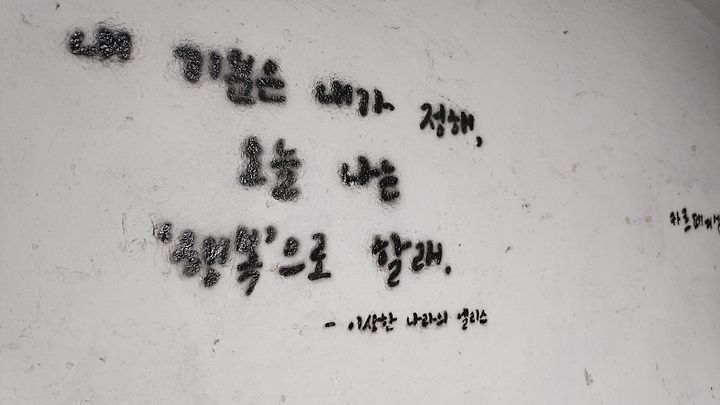 내 기분은 내가 정해,
오늘 나는
'행복'으로 할래.
- 이상한 나라의 앨리스